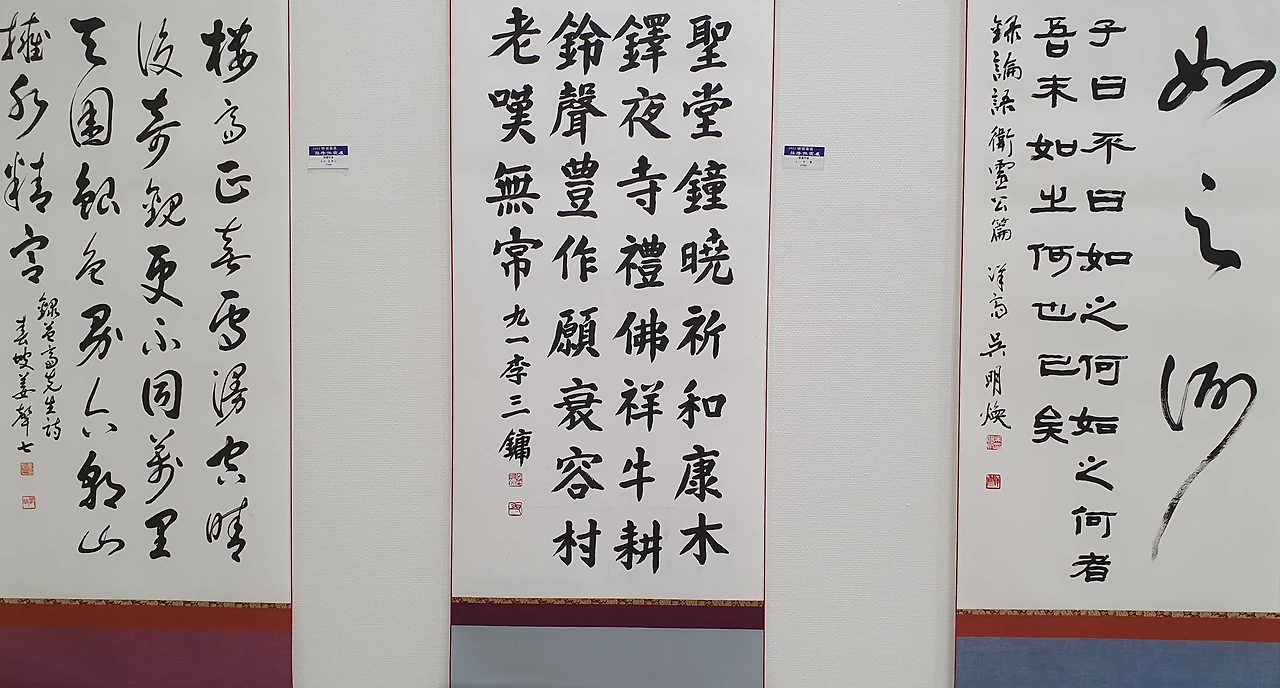 如之何
子曰不曰如之何如之何者
吾末如之何也已矣
錄論語衛靈公篇 吳明煥
聖堂鐘曉祈和康木
鐸夜寺禮佛祥牛耕
鈴聲豊作願衰容村
老嘆無常 九一李三鏞
樓高正喜雪漫空晴
後奇觀更不同萬里
天圍銀色界六朝山
擁水精宮
錄益齋先生詩
春坡姜聲七